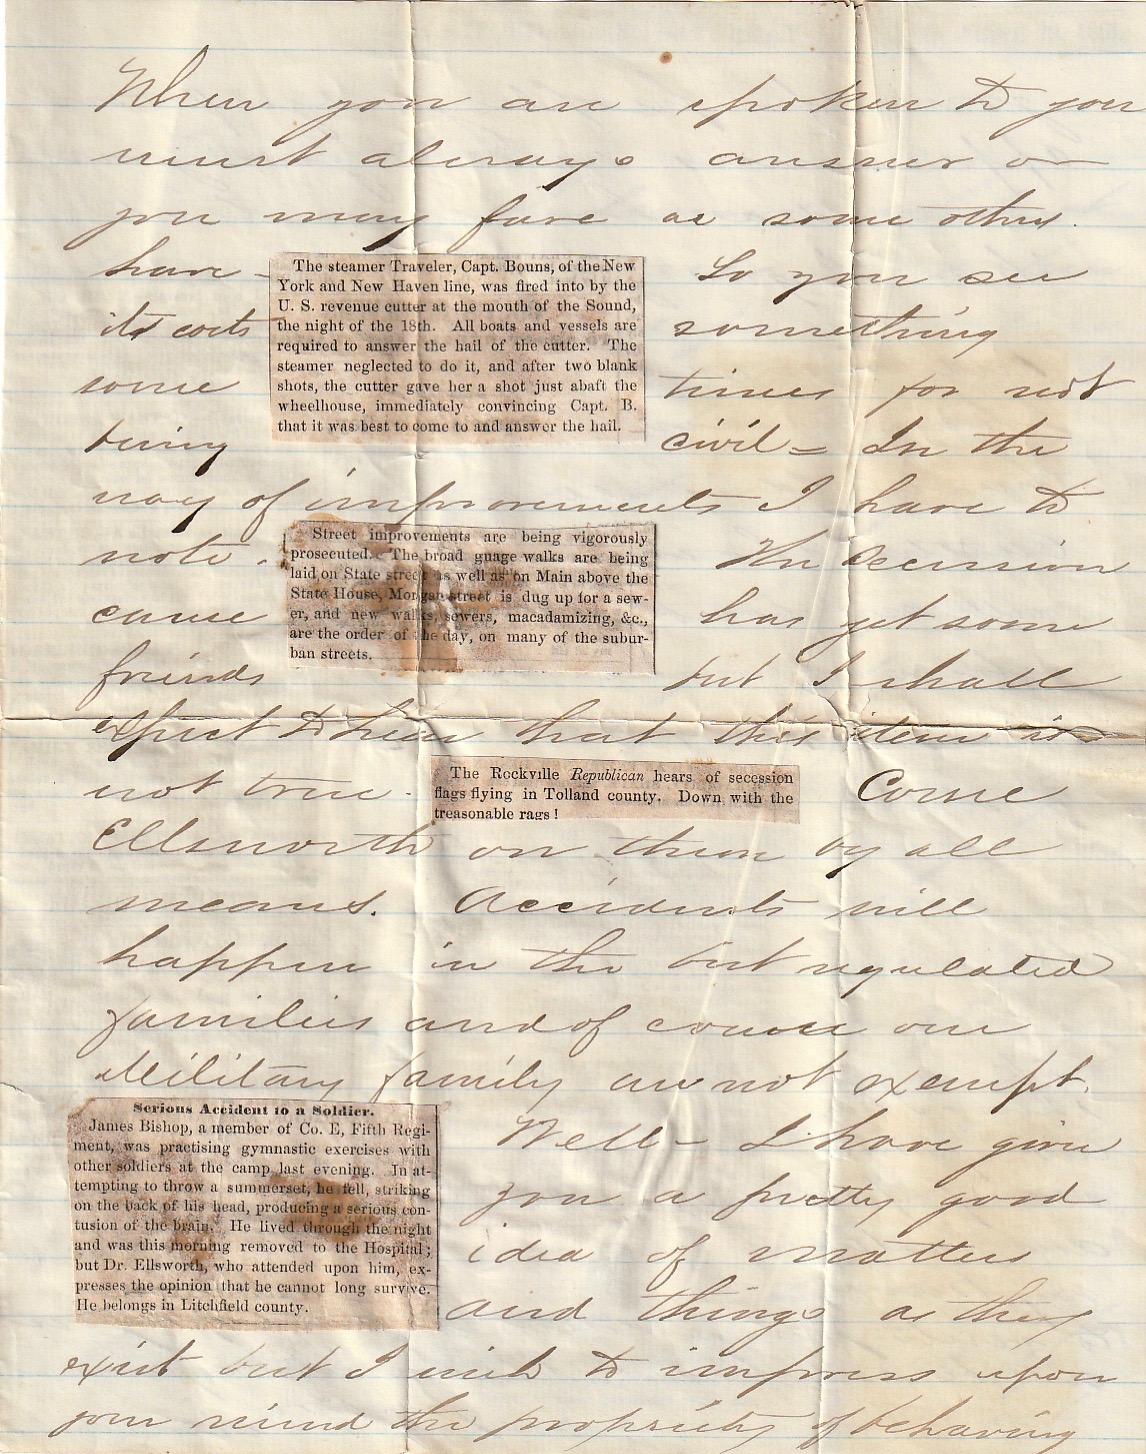 When you are spoken to you
must always answer or
you may fare as some others
have -
The steamer Traveler, Capt. Bouns, of the New
York and New Haven line, was fired into by the
U. S. revenue cutter at the mouth of the Sound,
the night of the 18th. All boats and vessels are
required to answer the hail of the cutter. The
steamer neglected to do it, and after two blank
shots, the cutter gave her a shot just abaft the
wheelhouse, immediately convincing Capt. B.
that it was best to come to and answer the hail.
So you see
its costs something
some times for not
being civil = In the
way of improvements I have to
note.
Street improvements are being vigorously
prosecuted. The broad guage walks are being
laid on State street as well as on Main above the
State House, Morgan street is dug up for a sew-
er, and new walks, sewers, macadamizing, &c.,
are the order of the day, on many of the subur-
ban streets.
The Secession
cause has yet some
friends but I shall
expect to hear that this item is
not true.
The Rockville Republican hears of secession
flags flying in Tolland county. Down with the
treasonable rags!
Come
Ellsworth on them by all
means. Accidents will
happen in the best regulated
families and of course our
Military family are not exempt.
Serious Accident to a Soldier.
James Bishop, a member of Co. E, Fifth Regi-
ment, was practising gymnastic exercises with
other soldiers at the camp last evening. In at-
tempting to throw a summerset, he fell, striking
on the back of his head, producing a serious con-
tusion of the brain. He lived through the night
and was this morning removed to the Hospital;
but Dr. Ellsworth, who attended upon him, ex-
presses the opinion that he cannot long survive.
He belongs in Litchfield county.
Well - I have given
you a pretty good
idea of matters
and things as they
exist but I wish to impress upon
your mind the propriety of behaving